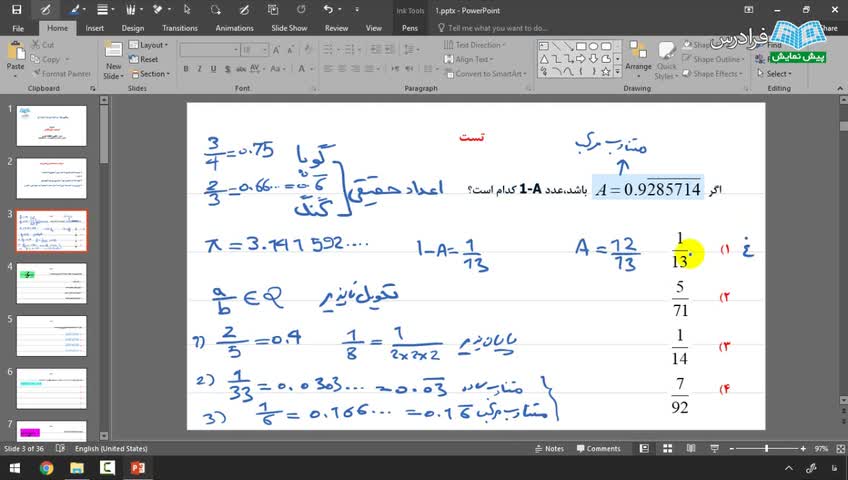 Ink Tools
1.pptx - PowerPoint
File
Home
Insert
Design
Transitions
Animations
Slide Show
Review
View
Pens
Tell me what you want to do...
فرادرس
پیش نمایش
Paste
Cut
Copy
Format Painter
Clipboard
New Slide
Layout
Reset
Section
Slides
Font
Paragraph
Text Direction
Align Text
Convert to SmartArt
Arrange
Quick Styles
Shape Fill
Shape Outline
Shape Effects
Drawing
Find
Select
Editing
تست
متناوب مرکب
3/4 = 0.75 گویا
2/3 = 0.66... = 0.6̅ گنگ
اعداد حقیقی
اگر A = 0.9285714 باشد،عدد 1-A کدام است؟
π = 3.141592....
1-A = 1/13
A = 12/13
1/13 (۱
غ
a/b ∈ Q تحویل ناپذیر
5/71 (۲
1) 2/5 = 0.4 1/8 = 1/2×2×2 پایان پذیر
1/14 (۳
2) 1/33 = 0.0303... = 0.03 متناوب ساده
7/92 (۴
3) 1/6 = 0.166... = 0.16 متناوب مرکب
1
2
3
4
5
6
7
Slide 3 of 36
English (United States)
Notes
Comments
97%